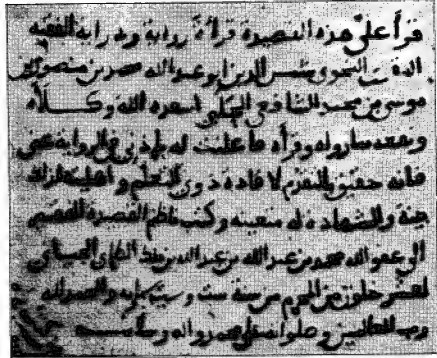 قرأ على هذه القصيدة قراءة رواية ودراية الفقيه
النحوى شمس الدين ابو عبد الله محمد بن منصور بن
موسى بن محمد الشافعى الحلبى اسعده الله
ونفعه بما رواه وقرأه فاعلنت له باذنى فى الرواية عنى
فانه حقيق بالتقدم لافادة ذوى التعلم
والشهادة له متعينة وكتب ناظم القصيدة الفقير
الى عفو الله محمد بن عبد الله بن عبد الله بن مالك الطائى الجيانى
لعشر خلون من المحرم من سنة ست وستين وستمائة والحمد لله
رب العالمين وصلواته على محمد واله وسلامه